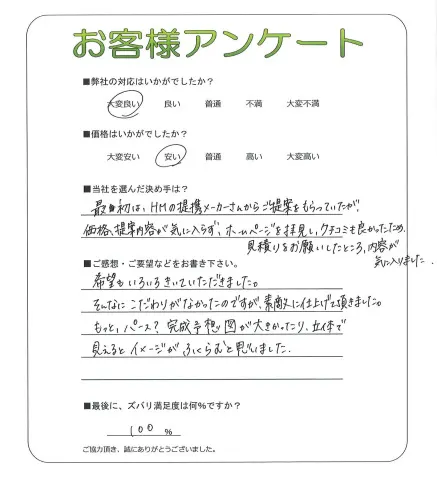 お客様アンケート
■弊社の対応はいかがでしたか？
大変良い 良い 普通 不満 大変不満
■価格はいかがでしたか？
大変安い 安い 普通 高い 大変高い
■当社を選んだ決め手は？
最初は、HMの提携メーカーさんからご提案をもらっていたが、
価格、提案内容が気に入らず、ホームページを拝見し、クチコミも良かったため、
見積りをお願いしたところ、内容が
気に入りました。
■ご感想・ご要望などをお書き下さい。
希望もいろいろきいていただきました。
そんなにこだわりがなかったのですが、素敵に仕上げて頂きました。
もっと、パース？完成予想図が大きかったり、立体で
見えるとイメージがふくらむと思いました。
■最後に、ズバリ満足度は何％ですか？
100 %
ご協力頂き、誠にありがとうございました。